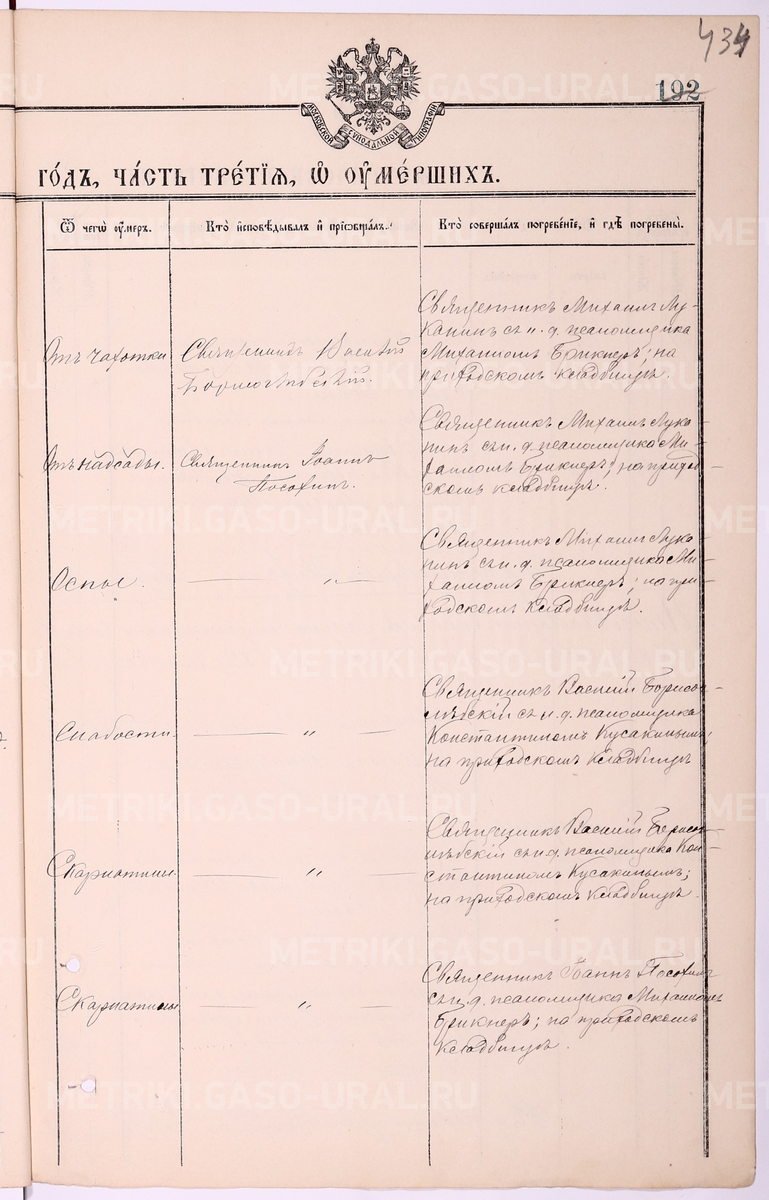 434
192
МОСКОВСКОЙ СѴНОДАЛЬНОЙ ТИПОГРАФІИ
ГО́ДЪ, ЧА́СТЬ ТРЕ́ТІЯ, Ѡ҆ ОУ҆МЕ́РШИХЪ.
Ѿ чегѡ̀ оу҆́меръ.
Кто̀ и҆сповѣ́дывалъ и҆ прїѡбща́лъ.
Кто̀ соверша́лъ погребе́нїе, и҆ гдѣ̀ погребены̀.
Отъ чахотки
Священникъ Василій
Борисоглѣбскій.
Священникъ Михаилъ Лу-
канинъ съ и. д. псаломщика
Михаиломъ Брикнеръ; на
приходскомъ кладбищѣ.
Отъ надсады.
Священникъ Іоаннъ
Посохинъ.
Священникъ Михаилъ Лука-
нинъ съ и. д. псаломщика Ми-
хаиломъ Брикнеръ; на приход-
скомъ кладбищѣ.
Оспы.
— „ —
Священникъ Михаилъ Лука-
нинъ съ и. д. псаломщика Ми-
хаиломъ Брикнеръ; на при-
ходскомъ кладбищѣ.
Слабости.
— „ —
Священникъ Василій Борисог-
лѣбскій съ и. д. псаломщика
Константиномъ Кусакинымъ;
на приходскомъ кладбищѣ
Скарлатины.
— „ —
Священникъ Василій Борисог-
лѣбскій съ и. д. псаломщика Кон-
стантиномъ Кусакинымъ;
на приходскомъ кладбищѣ.
Скарлатины
— „ —
Священникъ Іоаннъ Посохинъ
съ и. д. псаломщика Михаиломъ
Брикнеръ; на приходскомъ
кладбищѣ.
METRIKI.GASO-URAL.RU